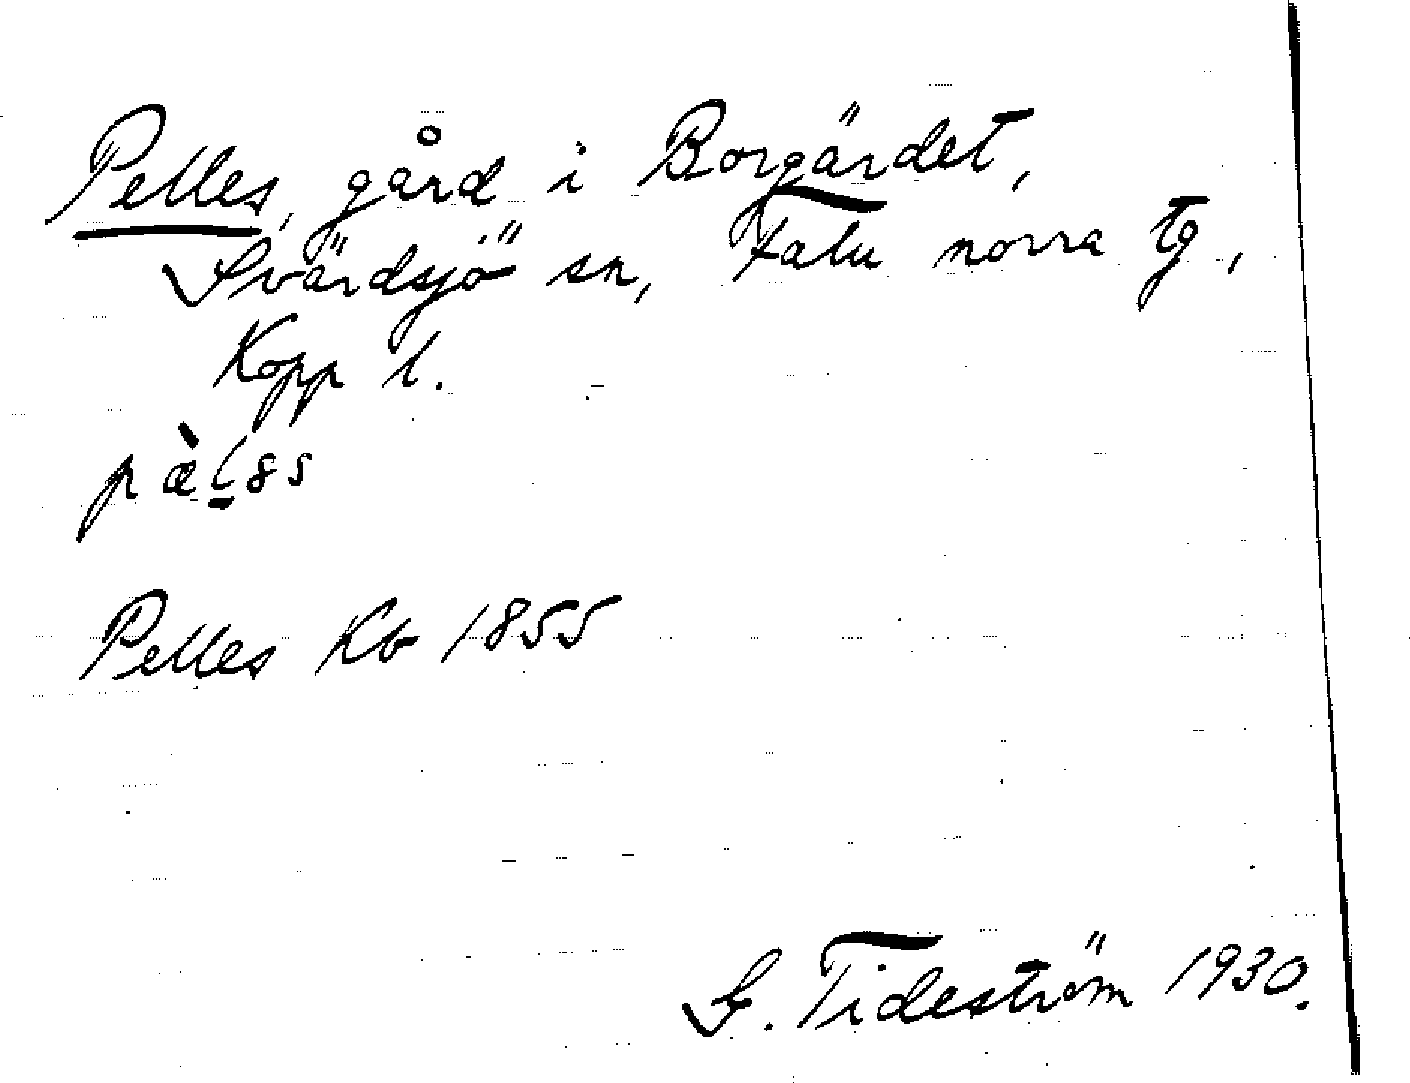 Pelles, gård i Borgärdet,
Svärdsjö sn, Falu norra tg,
Kopp l.
pæ̀l̲8s
Pelles Kb 1855
G. Tideström 1930.